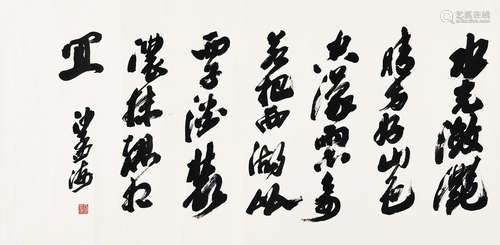 水光瀲灧
晴方好山色
空濛雨亦奇
若把西湖比
西子淡妝
濃抹總相
宜
沙孟海